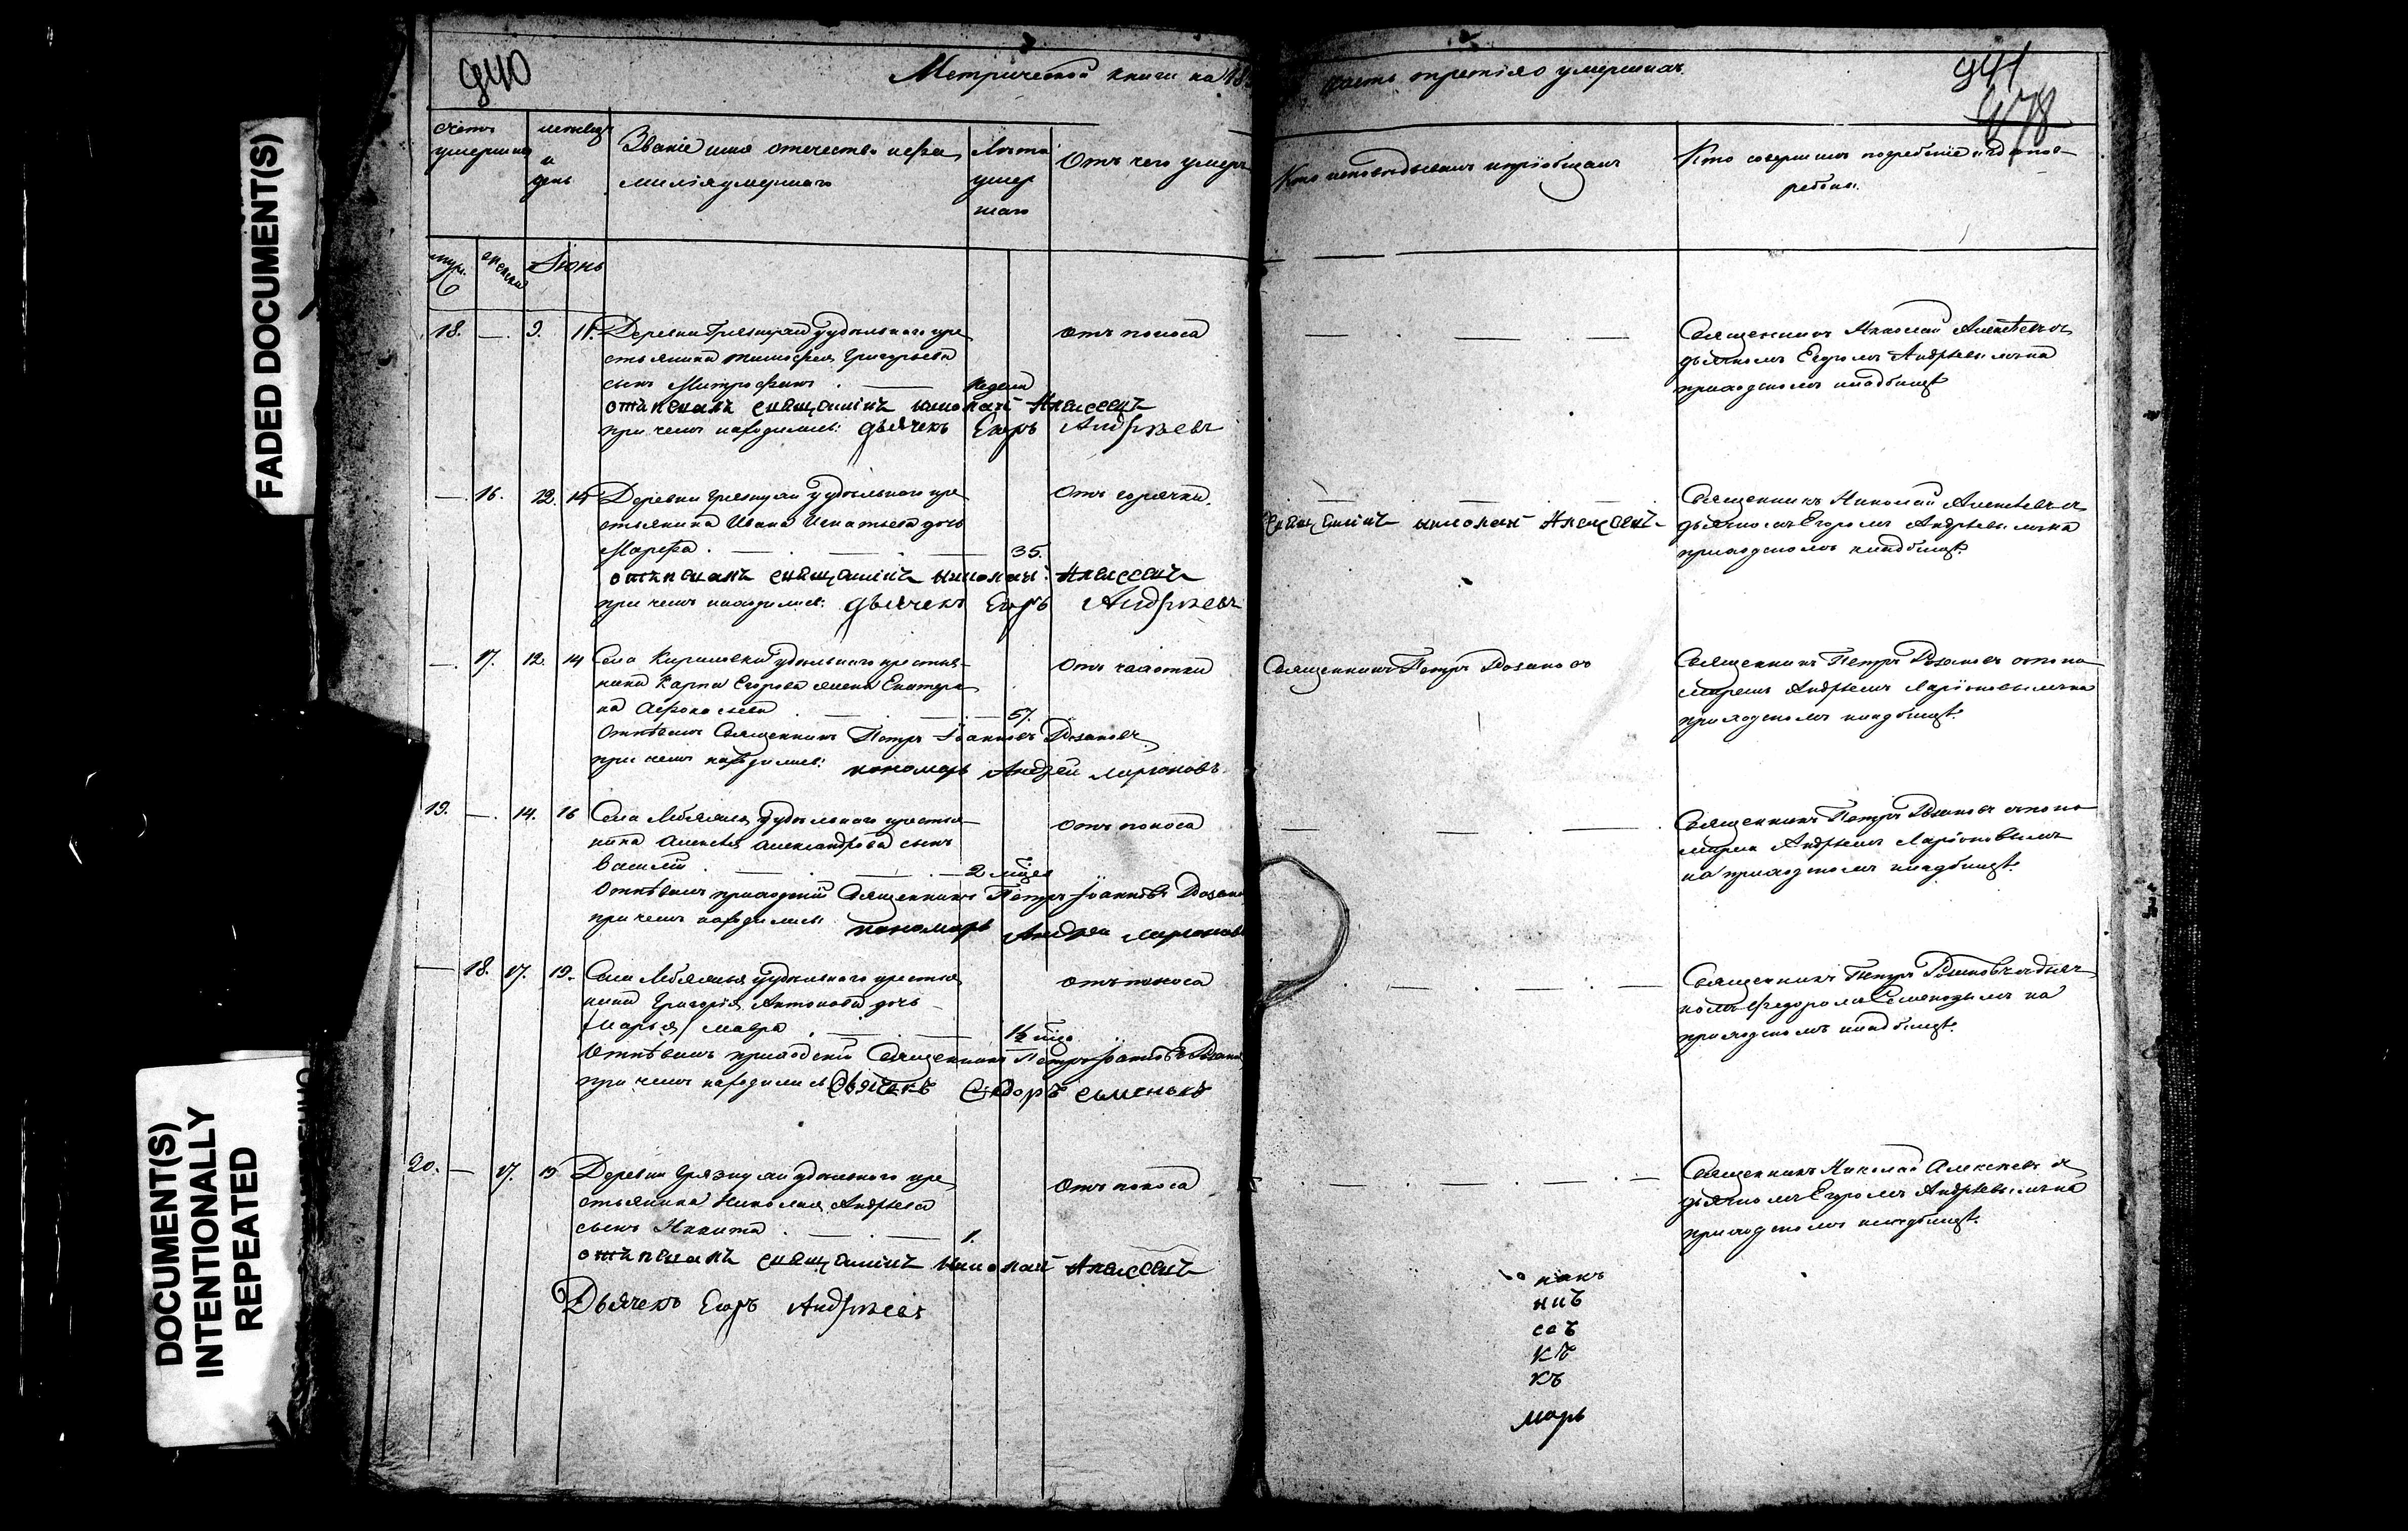 FADED DOCUMENT(S)
DOCUMENT(S)
INTENTIONALLY
REPEATED
940
Метрической книги на 18
часть третія о умершихъ.
941
478
счетъ умершихъ
мѣсяцъ и день
Званіе имя отечество и фамилія умершаго
Лѣта умершаго
Отъ чего умеръ
Кто исповѣдывалъ и пріобщалъ
Кто совершилъ погребеніе и гдѣ погребены.
муж.
женска
Іюнь
18. — 9. 11. Деревни удѣльного кре
стьянина Тимофея Григорьева
сынъ Митрофанъ . — недели
отъ поноса
отпевалъ священикъ николай Алексеевъ
при чемъ находились: дьячекъ Егоръ Андрѣевъ
Священникъ Николай Алексѣевъ съ
дьячкомъ Егоромъ Андрѣевымъ на
приходскомъ кладбищѣ
— 16. 12. 14 Деревни удѣльного кре
стьянина Ивана Игнатьева дочь
Марфа . — . — . — 35.
Отъ горячки.
отпевалъ священикъ николай Алексеевъ
при чемъ находились: дьячекъ Егоръ Андрѣевъ
священикъ николай Алексеевъ
Священникъ Николай Алексѣевъ съ
дьячкомъ Егоромъ Андрѣевымъ на
приходскомъ кладбищѣ.
— 17. 12. 14 Села удѣльного крестья
нина Карпа Егорова жена Екатери
на . — . — . — 57.
Отъ чахотки
Отпѣвалъ Священникъ Петръ Іоанновъ Розановъ
при чемъ находились: пономарь Андрей Ларіоновъ.
Священникъ Петръ Розановъ
Священникъ Петръ Розановъ съ поно
маремъ Андрѣемъ Ларіоновымъ на
приходскомъ кладбищѣ.
19. — . 14. 16 Села Лебяжья удѣльного крестья
нина Алексѣя Александрова сынъ
Василій . — . — . — 2 мѣся
Отъ поноса
Отпѣвалъ приходскій Священникъ Петръ Іоанновъ Розано
при чемъ находились: пономарь Андрей Ларионовъ
Священникъ Петръ Розановъ съ поно
маремъ Андрѣемъ Ларіоновымъ
на приходскомъ кладбищѣ.
— 18. 17. 19. Села Лебяжья удѣльного крестья
нина Григорія Антонова дочь
/Марья/ Мавра . — . — 1½ мѣся
отъ поноса
Отпѣвалъ приходскій Священникъ Петръ Іоанновъ Розано
при чемъ находились дьячекъ Федоръ семеновъ
Священникъ Петръ Розановъ съ дьяч
комъ Федоромъ Семеновымъ на
приходскомъ кладбищѣ.
20. — 17. 19 Деревни удѣльного кре
стьянина Николая Андрѣева
сынъ Никита . — . — 1.
Отъ поноса
отпевалъ священикъ николай Алексеевъ
Дьячекъ Егоръ Андрѣевъ
Священникъ Николай Алексѣевъ съ
дьячкомъ Егоромъ Андрѣевымъ на
приходскомъ кладбищѣ.
никъ
съ
къ
къ
марь